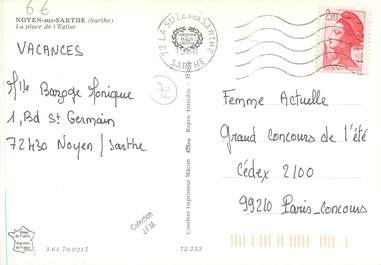 6€
NOYEN-sur-SARTHE (Sarthe)
La place de l'Eglise
VACANCES
Mlle Bazoge Monique
1, Bd St Germain
72430 Noyen / Sarthe
72
72 LA SUZE SUR SARTHE
SARTHE
2,20
Femme Actuelle
Grand concours de l'été
Cédex 2100
99210 Paris-concours
Combier Imprimeur Mâcon
Repro. Interdite
Collection
J.F.M.
3.61.79.0217
72.233